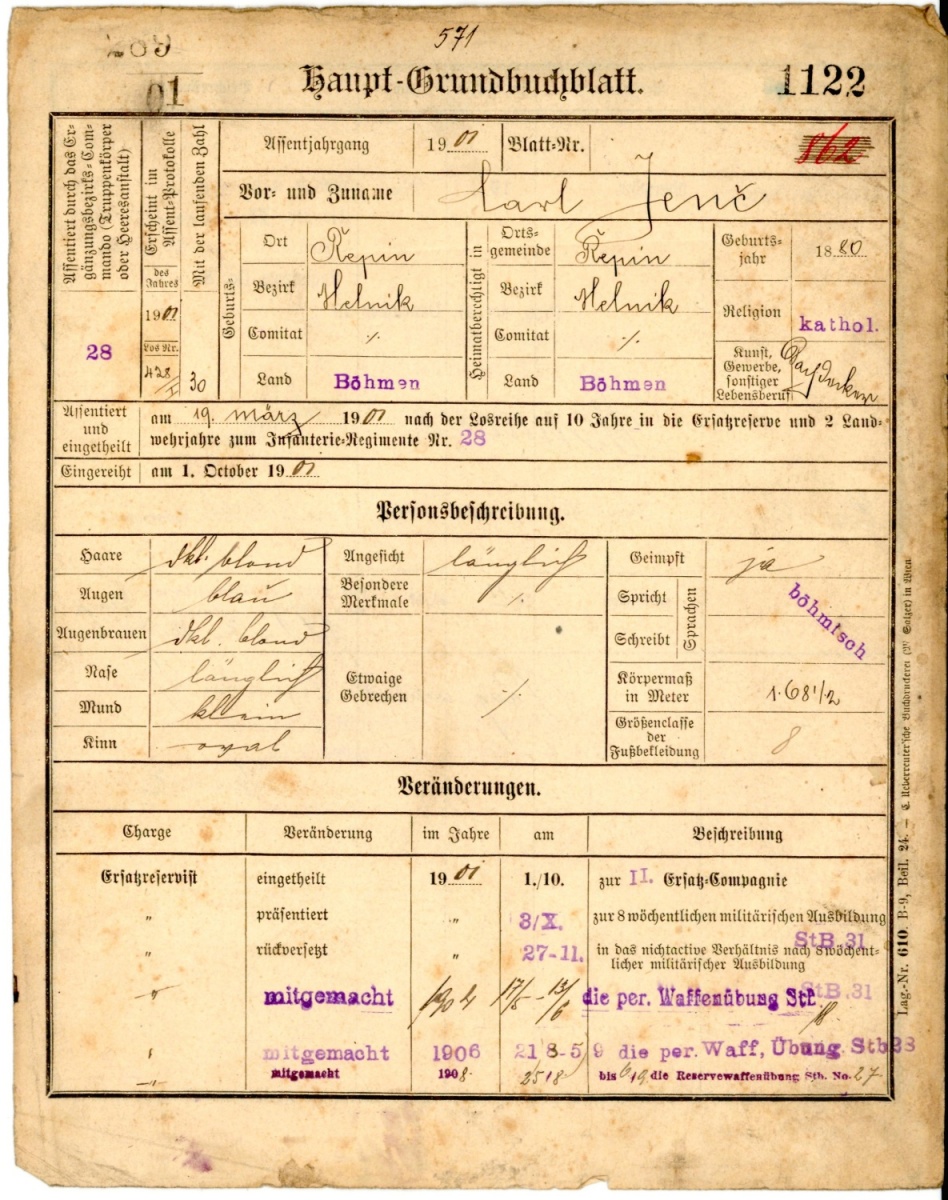 571
01
Haupt-Grundbuchblatt.
1122
862
Assentiert durch das Er-
gänzungsbezirks-Com-
mando (Truppenkörper
oder Heeresanstalt)
28
Erscheint im
Assent-Protokolle
des
Jahres
1901
Los Nr.
428
Mit der laufenden Zahl
30
Assentjahrgang 1901 Blatt-Nr.
Vor- und Zuname Karl Jenč
Geburts-
Ort Řepin
Bezirk Melnik
Comitat ٪
Land Böhmen
Heimatberechtigt in
Orts-
gemeinde Řepin
Bezirk Melnik
Comitat ٪
Land Böhmen
Geburts-
jahr 1880
Religion kathol.
Kunst,
Gewerbe,
sonstiger
Lebensberuf
Assentiert
und
eingetheilt
am 19. märz 1901 nach der Losreihe auf 10 Jahre in die Ersatzreserve und 2 Land-
wehrjahre zum Infanterie-Regimente Nr. 28
Eingereiht am 1. October 1901
Personsbeschreibung.
Haare dkl. blond
Augen blau
Augenbrauen dkl. blond
Nase länglich
Mund klein
Kinn oval
Angesicht länglich
Besondere
Merkmale ٪
Etwaige
Gebrechen ٪
Geimpft ja
Spricht
Schreibt
Sprachen
böhmisch
Körpermaß
in Meter 1·68 1/2
Größenclasse
der
Fußbekleidung 8
Veränderungen.
Charge Veränderung im Jahre am Beschreibung
Ersatzreservist eingetheilt 1901 1./10. zur II. Ersatz-Compagnie
„ präsentiert „ 3/X. zur 8 wöchentlichen militärischen Ausbildung
StB. 31
„ rückversetzt „ 27-11. in das nichtactive Verhältnis nach 8 wöchent-
licher militärischer Ausbildung
StB. 31
„ mitgemacht 1904 17/5 - 13/6 die per. Waffenübung StB.
18
„ mitgemacht 1906 21 8-5 9 die per. Waff, Übung StbB
„ mitgemacht 1908. 25/8 bis 6/9. die Reservewaffenübung Stb. No. 27
Lag.-Nr. 610. B-9, Beil. 24. — C. Ueberreuter'sche Buchdruckerei (M. Salzer) in Wien